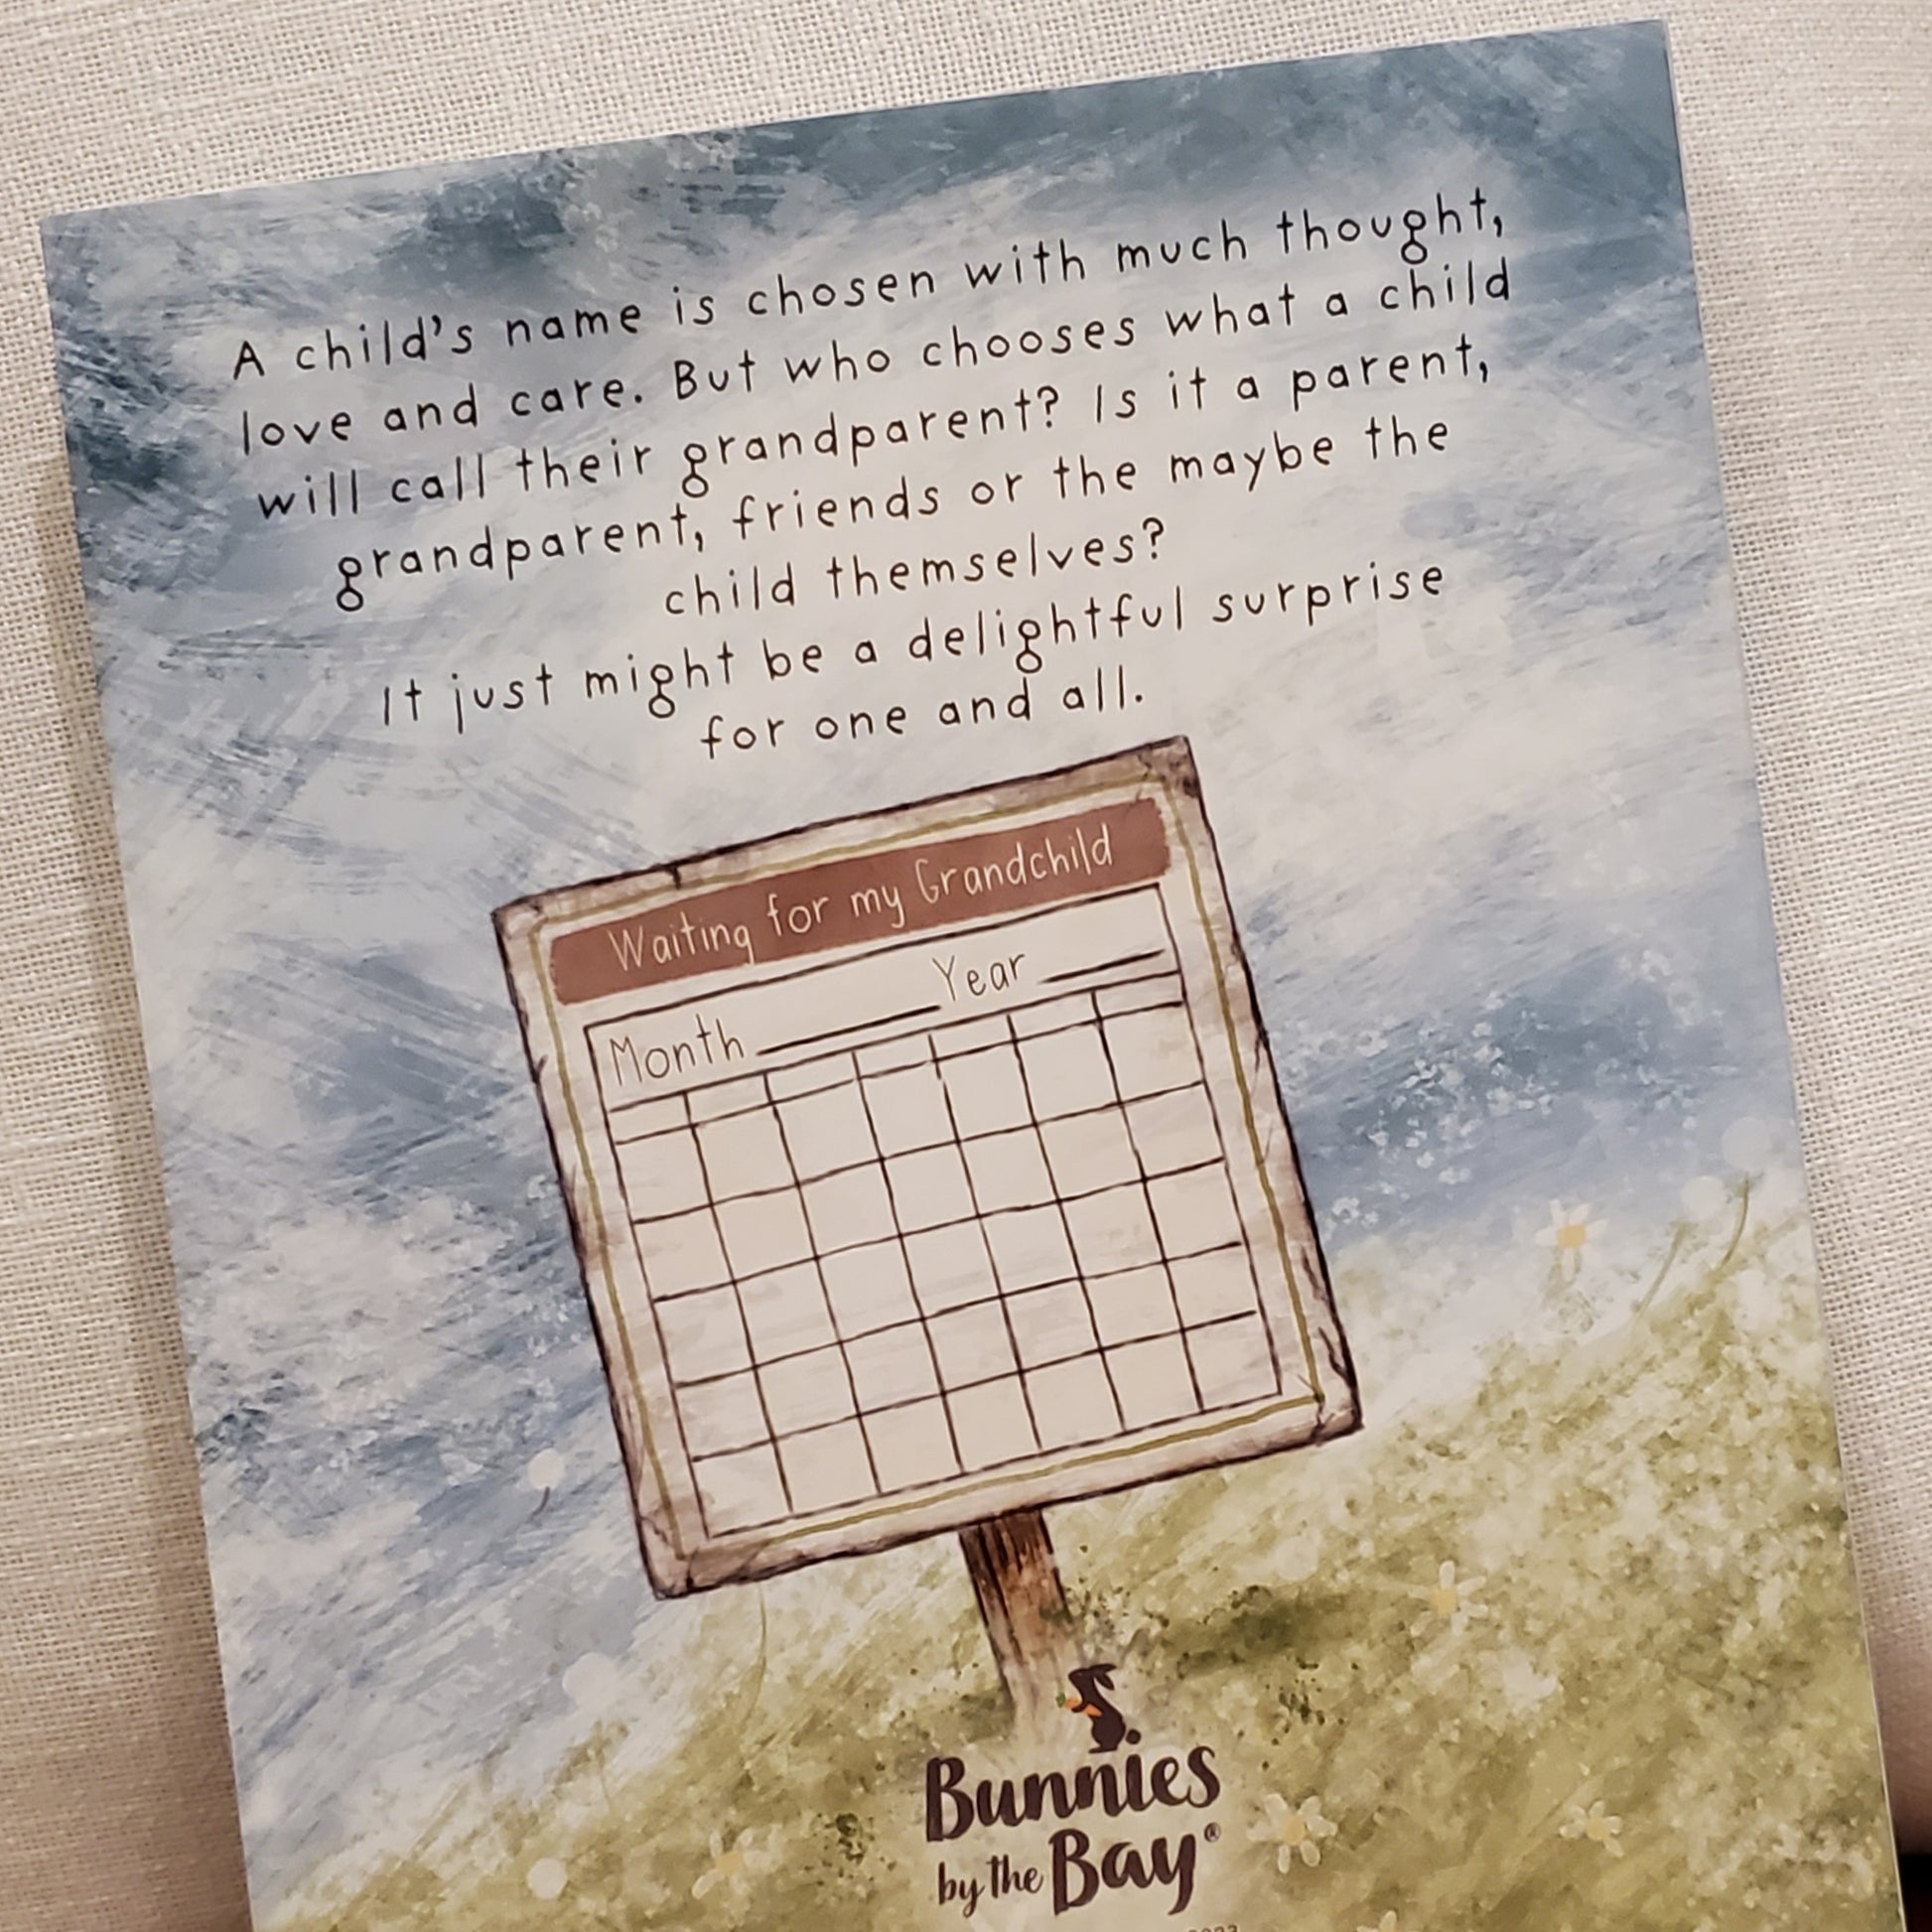 A child's name is chosen with much thought,
love and care. But who chooses what a child
will call their grandparent? Is it a parent,
grandparent, friends or the maybe the
child themselves?
It just might be a delightful surprise
for one and all.
Waiting for my Grandchild
Month Year
Bunnies
by the Bay®